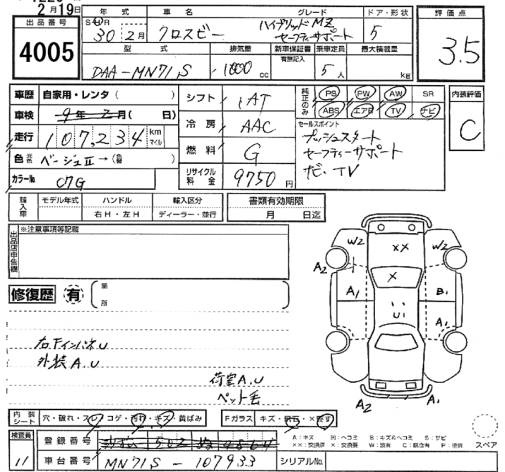 2月19日
出品番号
4005
年式 車名 グレード ドア・形状
30年2月 クロスビー ハイブリッドMZ セーフティサポート 5
型式 排気量 新車保証書 乗車定員 最大積載量
有無記入
DAA-MN71S 1000 cc 5人 kg
評価点
3.5
車歴 自家用・レンタ( )
車検 9年2月( 日)
走行 107,234 km マイル
色 元色 ベージュⅡ→(色替 )
カラーNo. C7G
シフト IAT
冷房 AAC
燃料 G
リサイクル料金 9750円
純正のみ PS PW AW SR
ABS エアB TV ナビ
セールスポイント
プッシュスタート
セーフティーサポート
ナビ、TV
内装評価
C
輸入車 モデル年式 ハンドル 輸入区分
右H・左H ディーラー・並行
書類有効期限
月 日迄
出品店申告欄 ※注意事項等記載
修復歴 有 箇所
右FインパネU
外装A.U
荷室A.U
ペット毛
W2 XX W2
A2 X A2
A1 B1
U
U
A1
A2 A2
内装シート 穴・破れ・スレ コゲ・汚れ・キズ・黄ばみ
Fガラス キズ・飛石・×要す
検査員 11
登録番号
車台番号 MN71S-107933
シリアルNo.
A:キズ H:ヘコミ B:キズ&ヘコミ S:サビ
XX:交換済 X:要交換 W:補有 C:腐食有 P:塗装
スペア